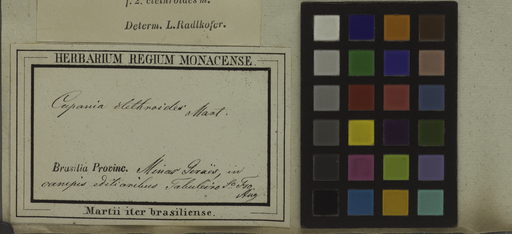 f. 2. clethroides m.
Determ. L. Radlkofer.
HERBARIUM REGIUM MONACENSE.
Cupania clethroides Mart.
Brasilia Provinc. Minas Geraës, in
campis editioribus Taboleiro
Martii iter brasiliense.